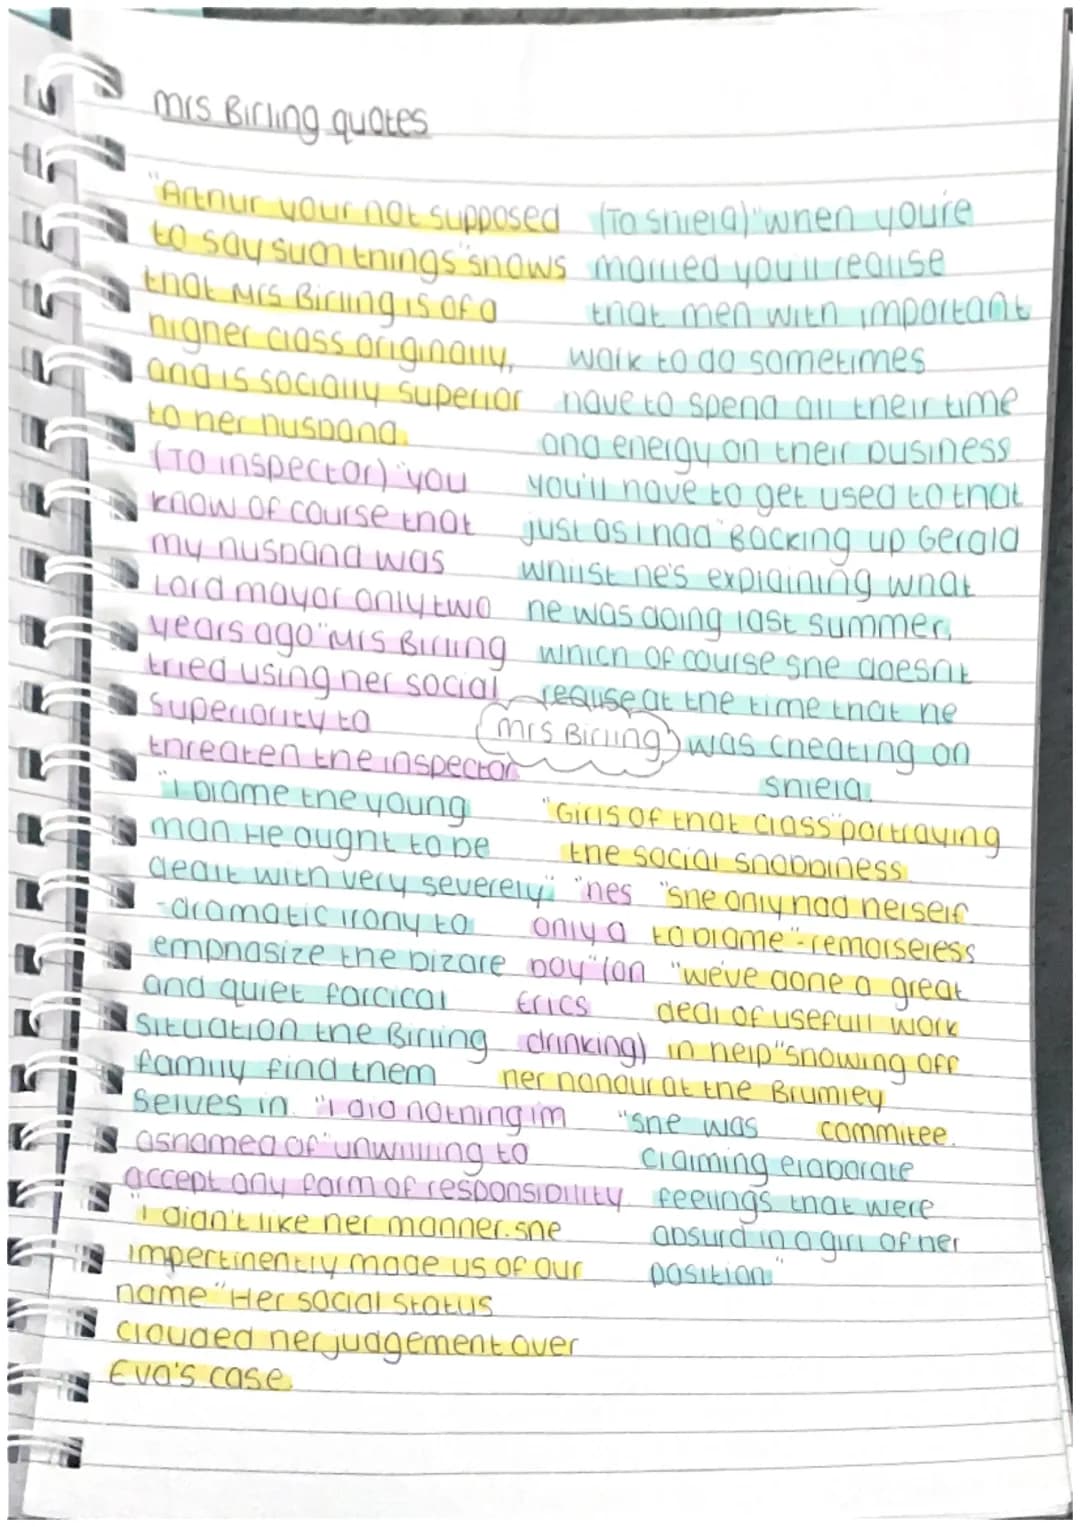 Mrs Birling quotes
"Arthur your not supposed
to say such things" shows
that Mrs Birling is of a
higher class originally,
and is socially superior
to her husband.
(To inspector) "you
know of course that
my husband was
Lord mayor only two
years ago" Mrs Birling
tried using her social
superiority to
threaten the inspector
"I blame the young
man He ought to be
dealt with very severely"
-dramatic irony to
emphasize the bizare
and quiet farcical
situation the Birling
family find them
selves in.
"I did nothing im
ashamed of" unwilling to
accept any form of responsibility
"I didn't like her manner. she
impertinently made us of our
name" Her social status
clouded her judgement over
Eva's case.
(To shiela) "when you're
married you'll realise
that men with important
work to do sometimes
have to spend all their time
and energy on their business
you'll have to get used to that
just as i had" Backing up Gerald
whilst he's explaining what
he was doing last summer,
which of course she doesnt
realise at the time that he
was cheating on
shiela.
Mrs Birling
"Girls of that class" portraying
the social snobbiness
"hes
only a
boy" (on
Erics
drinking)
"She only had herself
to blame" - remorseless
"we've done a great
deal of usefull work
in help" showing off
her honour at the Brumley
commitee.
"she was
claiming elaborate
feelings that were
absurd in a girl of her
position."